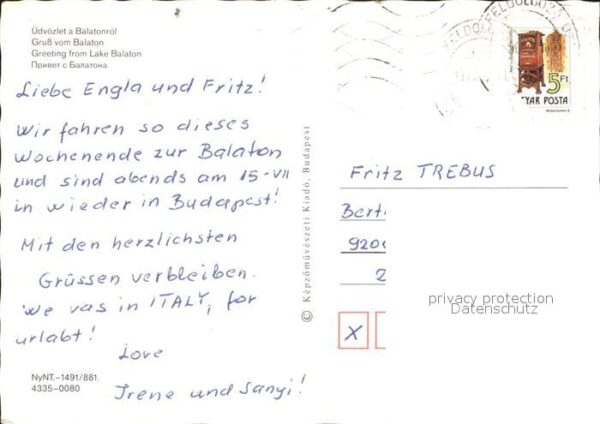 Üdvözlet a Balatonról
Gruß vom Balaton
Greeting from Lake Balaton
Привет с Балатона
Liebe Engla und Fritz!
Wir fahren so dieses
Wochenende zur Balaton
und sind abends am 15-VII
in wieder in Budapest!
Mit den herzlichsten
Grüssen verbleiben.
We vas in ITALY, for
urlabt!
Love
Irene und Sanyi!
NyNT.–1491/881.
4335–0080
© Képzőművészeti Kiadó, Budapest
5Ft
YAR POSTA
Fritz TREBUS
Bert
920
2
X
privacy protection
Datenschutz